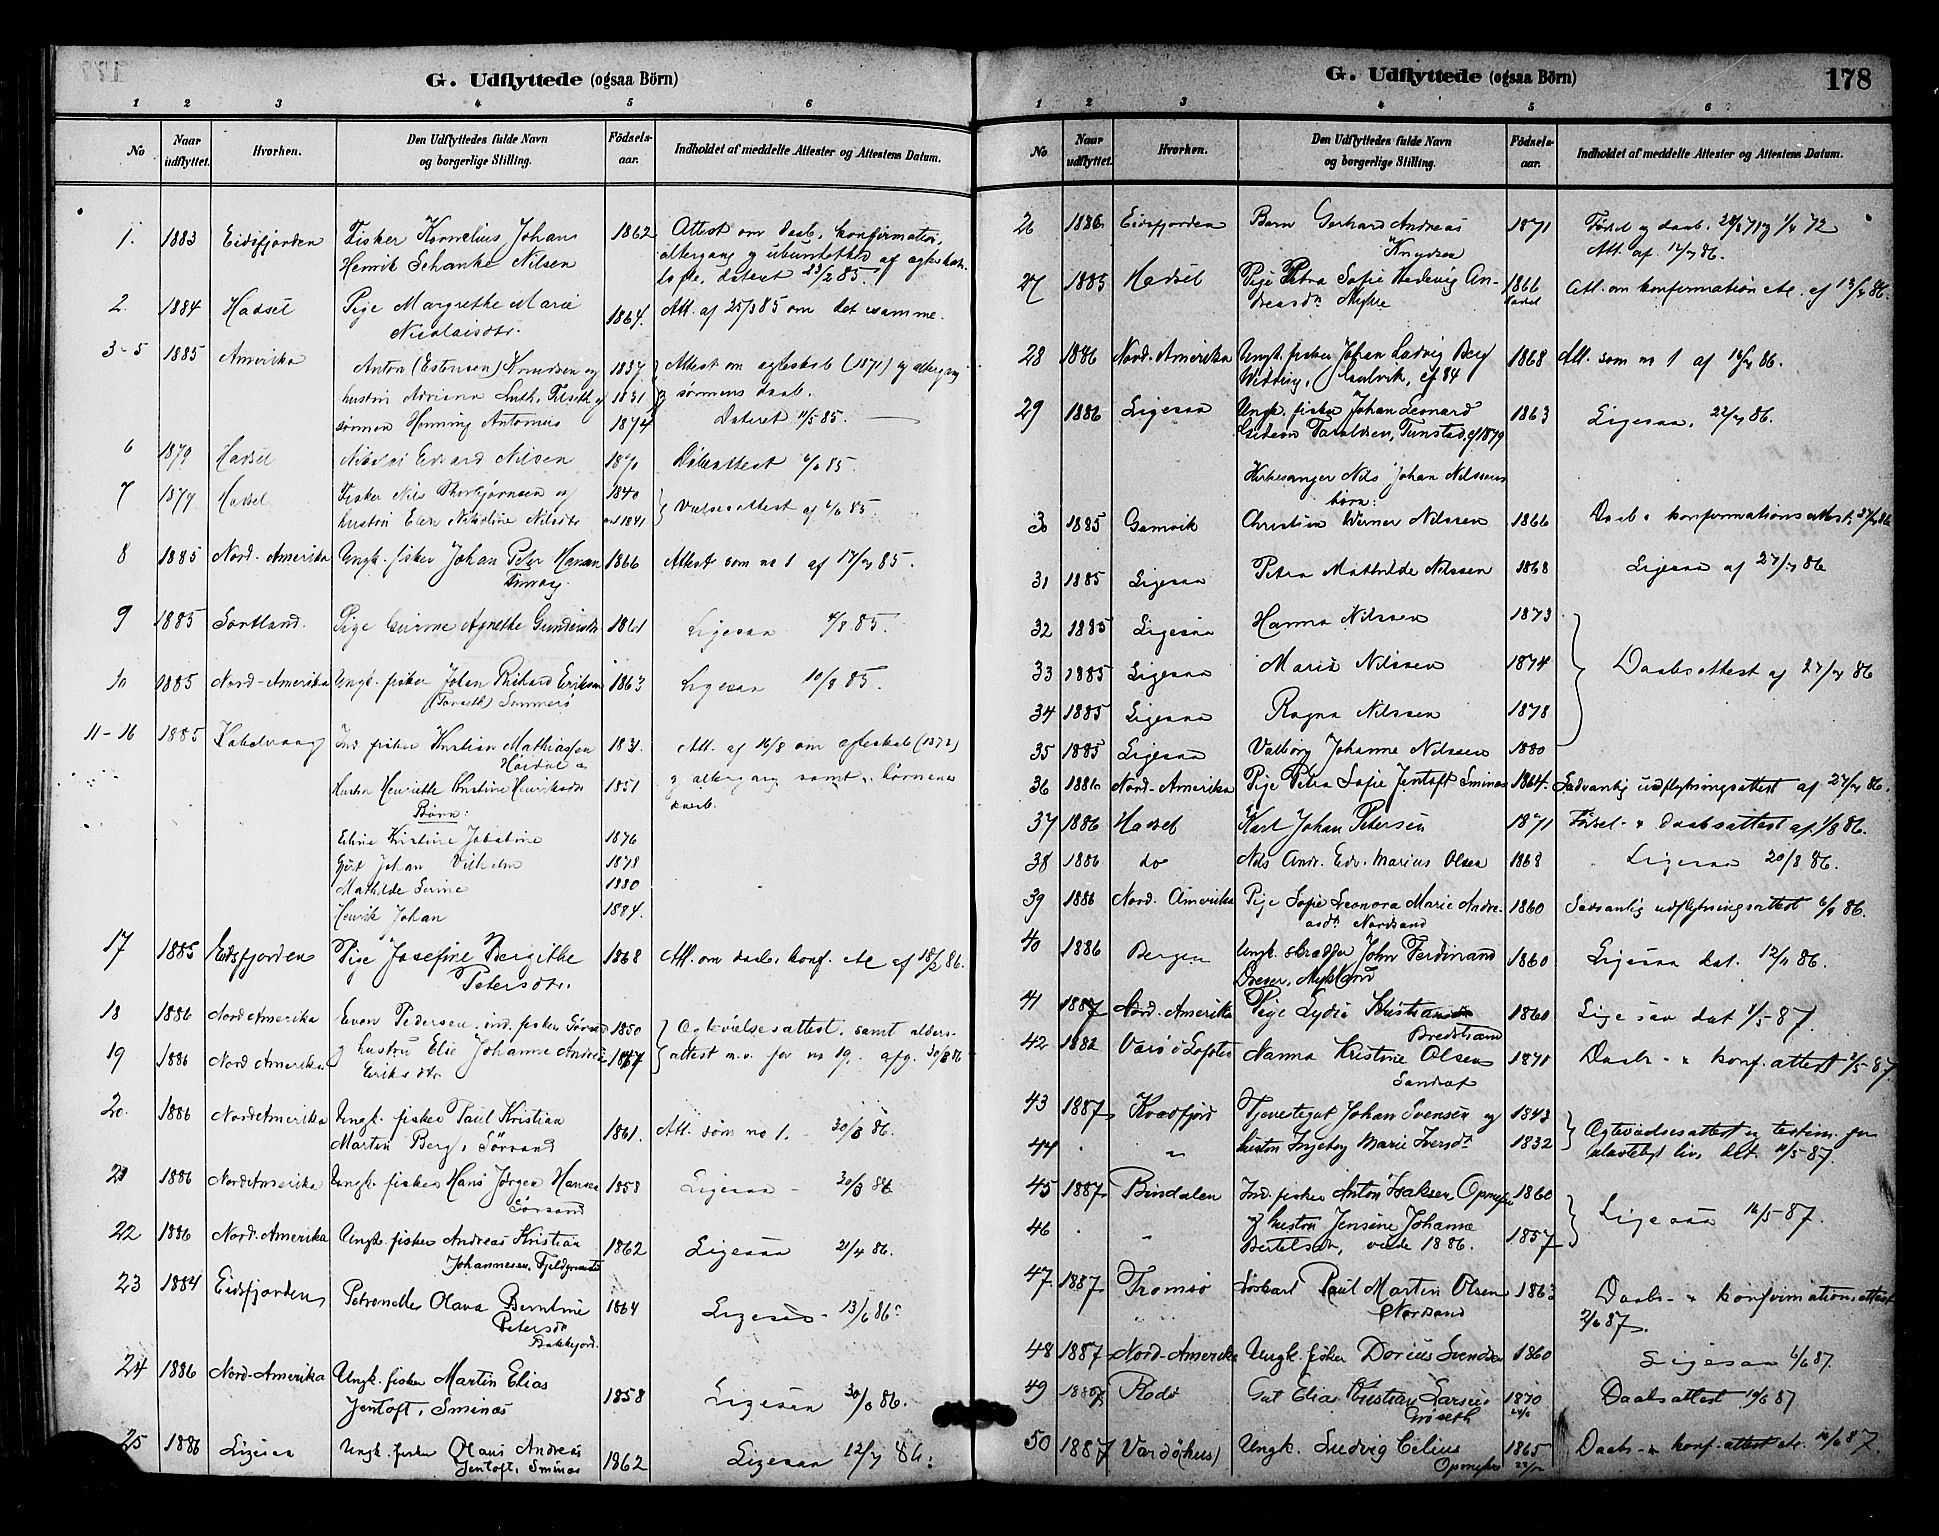 G. Udflyttede (ogsaa Börn)
1 2 3 4 5 6
No Naar udflyttet. Hvorhen. Den Udflyttedes fulde Navn og borgerlige Stilling. Födsels-aar. Indholdet af meddelte Attester og Attestens Datum.
1. 1883 Eidsfjorden Fisker Kornelius Johan 1862 Attest om daab, konfirmation,
Henrik Schanke Nilsen altergang og ubundethed af egteskabs
løfte, dateret 23/2 85.
2. 1884 Hadsel Pige Margrethe Marie
Nicolaisdtr. 1864. Att. af 25/3 85 om det samme.
3-5 1885 Amerika Anton (Estensen) Knudsen og 1837 Attest om egteskab (1871) og altergang
hustru Adriana 1831 og sønnens daab.
sønnen Henning Antonius 1874 Dateret 11/5 85.
6 1879 Hadsel Nikolai Edvard Nilsen 1870 Daabsattest 6/6 85.
7 1879 Hadsel Fisker Nils Thorbjørnsen og 1840
hustru Elen Nikoline Nilsdtr 1841 Vielsesattest af 6/6 85.
8 1885 Nord-Amerika Ungk. fisker Johan Peter Hansen 1866 Attest som no 1 af 17/7 85.
9 1885 Sortland. Pige Gurine Agnethe Gundersdtr 1861 Ligesaa 4/8 85.
10 1885 Nord-Amerika Ungk. fisker Johan Rikard Eriksen 1863 Ligesaa 10/8 85.
11-16 1885 Kabelvaag Ind. fisker Kristian Mathiassen 1831. Att. af 16/8 om egteskab (1873)
Hustru Henriette Kristine Henriksdtr 1851 og altergang samt børnenes
daab.
Børn:
Eline Kristine Jakobine 1876
Gjert Johan Vilhelm 1878
Mathilde Serine 1880
Henrik Johan 1884.
17 1885 Eidsfjorden Pige Josefine Bergithe 1868 Att. om daab, konf. etc af 18/2 86.
Petersdtr.
18 1886 Nord Amerika Even Pedersen, ind. fisker Sørsand 1850 Egtevielsesattest, samt alders-
19 1886 Nord Amerika og hustru Elie Johanne Andrea 1847 attest m.v. for no 19. afg. 30/3 86
Eriksdtr.
20. 1886 Nord Amerika Ungk. fisker Paul Kristian
Martin Berg, Sørsand 1861. Att. som no 1. - 30/3 86.
21 1886 Nord Amerika Ungk. fisker Hans Jørgen Hansen 1858 Ligesaa - 30/3 86
Sørsand
22 1886 Nord-Amerika Ungk. fisker Andreas Kristian 1862 Ligesaa 21/4 86.
Johannesen,
23 1884 Eidsfjorden Petronelle Olava Berntine 1864 Ligesaa - 13/6 86
Petersdtr
24 1886 Nord-Amerika Ungk. fisker Martin Elias
Jentoft, Sminæs 1858 Ligesaa 30/6 86.
25 1886 Ligesaa Ungk. fisker Olaus Andreas
Jentoft, Sminæs 1862 Ligesaa 12/7 86.
G. Udflyttede (ogsaa Börn) 178
1 2 3 4 5 6
No. Naar udflyttet. Hvorhen. Den Udflyttedes fulde Navn og borgerlige Stilling. Födsels-aar. Indholdet af meddelte Attester og Attestens Datum.
26 1886 Eidsfjorden Barn Gerhard Andreas 1871 Fødsel og daab.
Knudsen Att. af 12/7 86.
27 1885 Hadsel Pige Petra Sofie Hedevig An- 1866 Att. om konfirmation etc. af 13/7 86.
dreasdtr Myhre
28 1886 Nord-Amerika Ungk. fisker Johan Ludvig Berg 1868 Att. som no 1 af 16/7 86.
29 1886 Ligesaa Ungk. fisker Johan Leonard 1863 Ligesaa. 22/7 86.
Gideon Taraldsen, Tunstad, cf 1879
Kirkesanger Nils Johan Nilssens
børn:
30 1885 Gamvik Christian Werner Nilssen 1866 Daabs- & konfirmationsattest, 27/7 86
31 1885 Ligesaa Petra Mathilde Nilssen 1868 Ligesaa af 27/7 86
32 1885 Ligesaa Hanna Nilssen 1873
33 1885 Ligesaa Marie Nilssen 1874 Daabsattest af 27/7 86
34 1885 Ligesaa Ragna Nilssen 1878
35 1885 Ligesaa Valborg Johanne Nilssen 1880
36 1886 Nord-Amerika Pige Petra Sofie Jentoft Sminæs 1864. Sædvanlig udflytningsattest af 27/7 86.
37 1886 Hadsel Karl Johan Petersen 1871 Fødsel- & daabsattest af 1/8 86.
38 1886 do Nils Andr. Edv. Marius Olsen 1868 Ligesaa 20/8 86.
39 1886 Nord. Amerika Pige Sofie Leonora Marie Andre- 1860 Sædvanlig udflytningsattest 6/9 86.
asdtr Nordsand
40 1886 Bergen Ungk. John Ferdinand 1860 Ligesaa dat. 12/11 86.
41 1887 Nord-Amerika Pige Lydia Kristians 1860 Ligesaa dat 1/5-87.
Bredstrand
42 1882 Værø i Lofoten Nanna Kristine Olsen 1871 Daabs- & konf.attest 2/5-87.
Sandset
43 1887 Kvædfjord Tjenestegut Johan Svensen og 1843 Egtevielsesattest og testim. for
44 " hustru Ingeborg Marie Iversdtr 1832 ulasteligt liv, dat. 11/5-87.
45 1887 Bindalen Ind. fisker Anton Isaksen 1860
46 " og hustru Jensine Johanne Ligesaa 16/5-87.
Bertelsdtr, viede 1886. 1857
47. 1887 Tromsø Løskarl Paul Martin Olsen 1863 Daabs- & konfirmationsattest
Nordsand 2/6 87.
48 1887 Nord-Amerika Ungk. fisker Dorius Svendsen 1860 Ligesaa 6/6 87.
49 1887 Rødø Gut Elias Kristian Larsen 1870 Daabsattest 10/6 87
50 1887 Vardø(hus) Ungk. Ludvig Celius 1865 Daabs- & konf.attest etc. 16/6 87